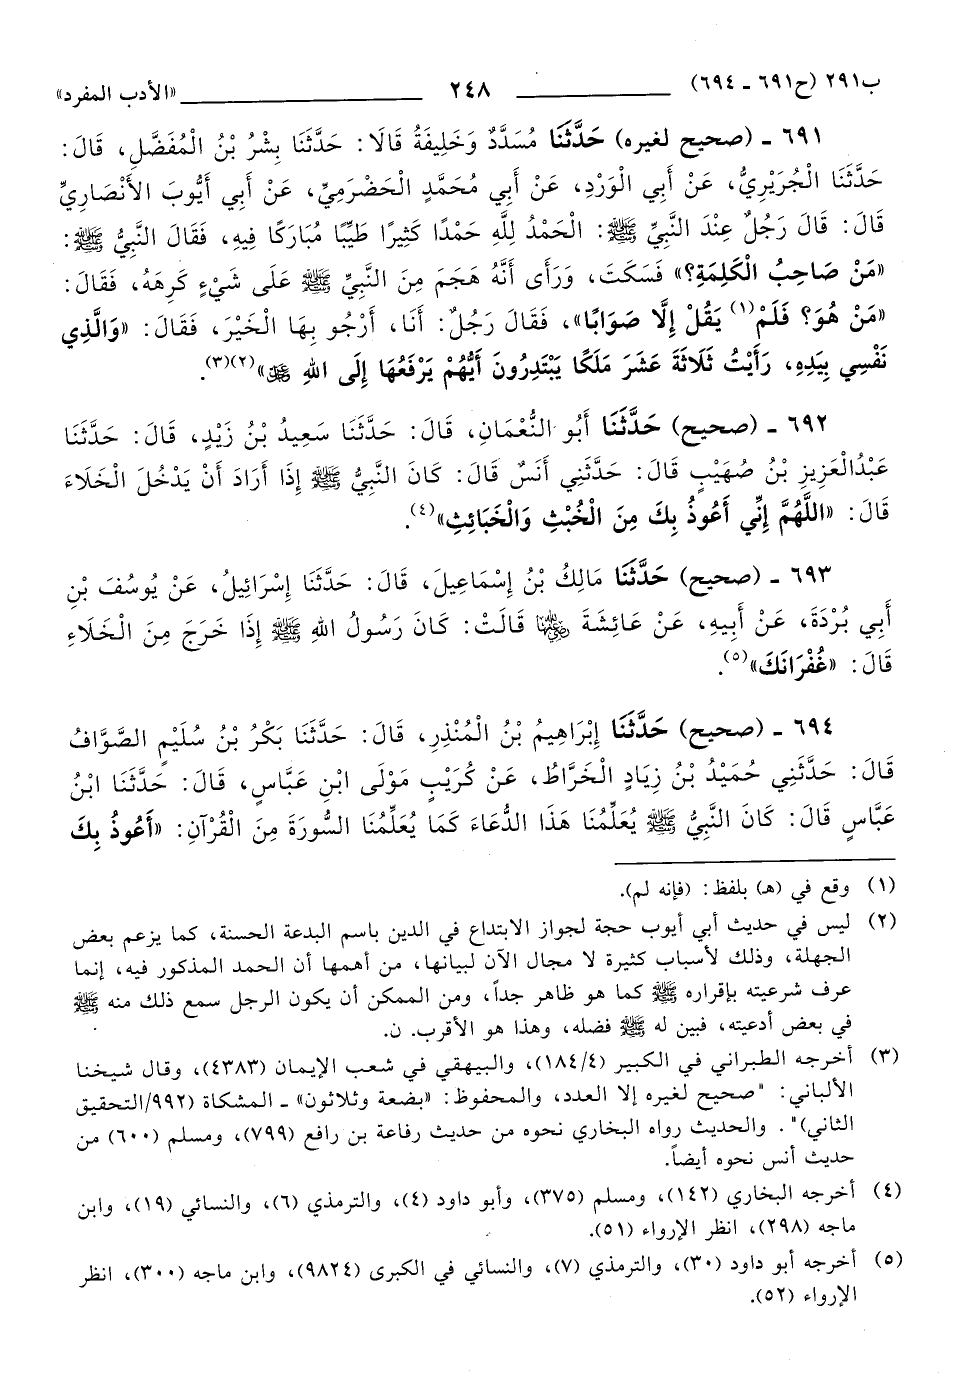 ب٢٩١ (ح٦٩١ ـ ٦٩٤) ٢٤٨ «الأدب المفرد»
٦٩١ ـ (صحيح لغيره) حَدَّثَنَا مُسَدَّدٌ وَخَلِيفَةُ قَالَا: حَدَّثَنَا بِشْرُ بْنُ الْمُفَضَّلِ، قَالَ:
حَدَّثَنَا الْجُرَيْرِيُّ، عَنْ أَبِي الْوَرْدِ، عَنْ أَبِي مُحَمَّدٍ الْحَضْرَمِيِّ، عَنْ أَبِي أَيُّوبَ الأَنْصَارِيِّ
قَالَ: قَالَ رَجُلٌ عِنْدَ النَّبِيِّ ﷺ: الْحَمْدُ لِلَّهِ حَمْدًا كَثِيرًا طَيِّبًا مُبَارَكًا فِيهِ، فَقَالَ النَّبِيُّ ﷺ:
«مَنْ صَاحِبُ الْكَلِمَةِ؟» فَسَكَتَ، وَرَأَى أَنَّهُ هَجَمَ مِنَ النَّبِيِّ ﷺ عَلَى شَيْءٍ كَرِهَهُ، فَقَالَ:
«مَنْ هُوَ؟ فَلَمْ(١) يَقُلْ إِلَّا صَوَابًا»، فَقَالَ رَجُلٌ: أَنَا، أَرْجُو بِهَا الْخَيْرَ، فَقَالَ: «وَالَّذِي
نَفْسِي بِيَدِهِ، رَأَيْتُ ثَلَاثَةَ عَشَرَ مَلَكًا يَبْتَدِرُونَ أَيُّهُمْ يَرْفَعُهَا إِلَى اللهِ ﷻ»(٢)(٣).
٦٩٢ ـ (صحيح) حَدَّثَنَا أَبُو النُّعْمَانِ، قَالَ: حَدَّثَنَا سَعِيدُ بْنُ زَيْدٍ، قَالَ: حَدَّثَنَا
عَبْدُالْعَزِيزِ بْنُ صُهَيْبٍ قَالَ: حَدَّثَنِي أَنَسٌ قَالَ: كَانَ النَّبِيُّ ﷺ إِذَا أَرَادَ أَنْ يَدْخُلَ الْخَلَاءَ
قَالَ: «اللَّهُمَّ إِنِّي أَعُوذُ بِكَ مِنَ الْخُبْثِ وَالْخَبَائِثِ»(٤).
٦٩٣ ـ (صحيح) حَدَّثَنَا مَالِكُ بْنُ إِسْمَاعِيلَ، قَالَ: حَدَّثَنَا إِسْرَائِيلُ، عَنْ يُوسُفَ بْنِ
أَبِي بُرْدَةَ، عَنْ أَبِيهِ، عَنْ عَائِشَةَ رضي الله عنها قَالَتْ: كَانَ رَسُولُ اللهِ ﷺ إِذَا خَرَجَ مِنَ الْخَلَاءِ
قَالَ: «غُفْرَانَكَ»(٥).
٦٩٤ ـ (صحيح) حَدَّثَنَا إِبْرَاهِيمُ بْنُ الْمُنْذِرِ، قَالَ: حَدَّثَنَا بَكْرُ بْنُ سُلَيْمٍ الصَّوَّافُ
قَالَ: حَدَّثَنِي حُمَيْدُ بْنُ زِيَادٍ الْخَرَّاطُ، عَنْ كُرَيْبٍ مَوْلَى ابْنِ عَبَّاسٍ، قَالَ: حَدَّثَنَا ابْنُ
عَبَّاسٍ قَالَ: كَانَ النَّبِيُّ ﷺ يُعَلِّمُنَا هَذَا الدُّعَاءَ كَمَا يُعَلِّمُنَا السُّورَةَ مِنَ الْقُرْآنِ: «أَعُوذُ بِكَ
(١) وقع في (هـ) بلفظ: (فإنه لم).
(٢) ليس في حديث أبي أيوب حجة لجواز الابتداع في الدين باسم البدعة الحسنة، كما يزعم بعض
الجهلة، وذلك لأسباب كثيرة لا مجال الآن لبيانها، من أهمها أن الحمد المذكور فيه، إنما
عرف شرعيته بإقراره ﷺ كما هو ظاهر جداً، ومن الممكن أن يكون الرجل سمع ذلك منه ﷺ
في بعض أدعيته، فبين له ﷺ فضله، وهذا هو الأقرب. ن.
(٣) أخرجه الطبراني في الكبير (١٨٤/٤)، والبيهقي في شعب الإيمان (٤٣٨٣)، وقال شيخنا
الألباني: "صحيح لغيره إلا العدد، والمحفوظ: «بضعة وثلاثون» ـ المشكاة (٩٩٢/التحقيق
الثاني)". والحديث رواه البخاري نحوه من حديث رفاعة بن رافع (٧٩٩)، ومسلم (٦٠٠) من
حديث أنس نحوه أيضاً.
(٤) أخرجه البخاري (١٤٢)، ومسلم (٣٧٥)، وأبو داود (٤)، والترمذي (٦)، والنسائي (١٩)، وابن
ماجه (٢٩٨)، انظر الإرواء (٥١).
(٥) أخرجه أبو داود (٣٠)، والترمذي (٧)، والنسائي في الكبرى (٩٨٢٤)، وابن ماجه (٣٠٠)، انظر
الإرواء (٥٢).